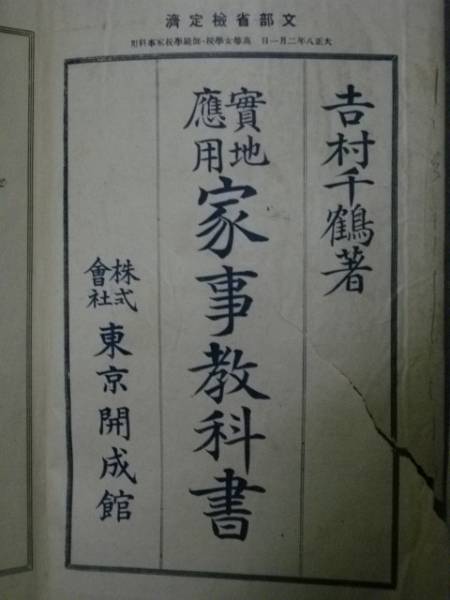 文部省檢定濟
大正八年二月一日 高等女學校・師範學校家事科用
吉村千鶴著
實地應用家事教科書
株式會社東京開成館